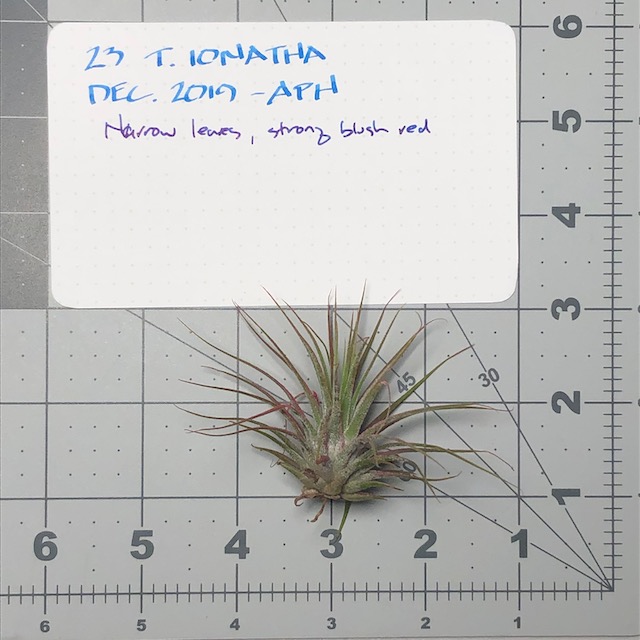 23 T. IONATHA
DEC. 2019 - APH
Narrow leaves, strong blush red
6
5
4
3
2
1
45
30
60
6 5 4 3 2 1
6 5 4 3 2 1